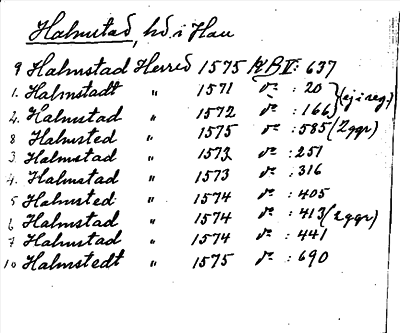 Halmstad, hd i Hall
9 Halmstad Herred 1575 KB V: 637
1. Halmstadt " 1571 do : 20
4. Halmstad " 1572 do : 166 } (ej i reg.)
8 Halmsted " 1575 do : 585 (2 ggr)
3 Halmstad " 1573 do : 251
4. Halmstad " 1573 do : 316
5 Halmsted " 1574 do : 405
6 Halmstad " 1574 do : 413 (2 ggr)
7 Halmstad " 1574 do : 441
10 Halmstedt " 1575 do : 690